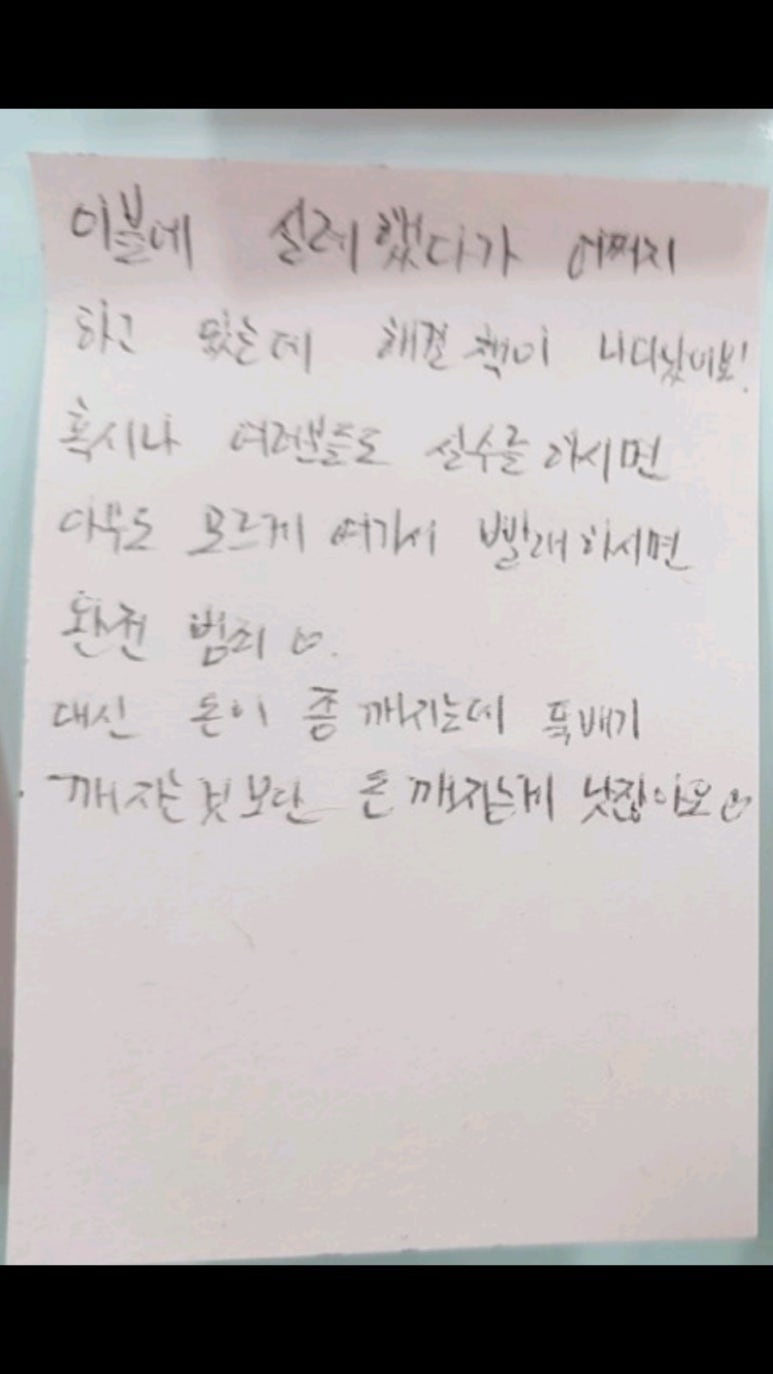 이불에 실례했다가 어쩌지
하고 있는데 해결책이 나타났이보!
혹시나 여러분들도 실수를 하시면
아무도 모르게 여기서 빨래하시면
완전 범죄 ♡.
대신 돈이 좀 깨지는데 뚝배기
깨지는것보단 돈 깨지는게 낫잖아요♡